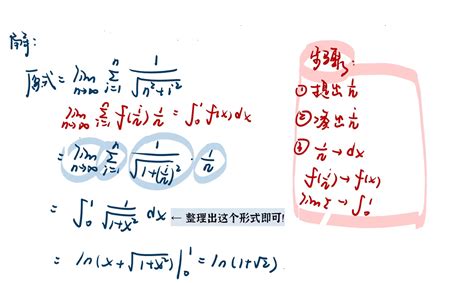 解:
原式 = lim n→∞ Σ i=1 n 1/√(n²+i²)
lim n→∞ Σ i=1 n f(i/n) 1/n = ∫₀¹ f(x)dx
= lim n→∞ Σ i=1 n 1/√(1+(i/n)²) · 1/n
= ∫₀¹ 1/√(1+x²) dx ← 整理出这个形式即可!
= ln(x+√(1+x²))|₀¹ = ln(1+√2)
步骤:
① 提出 1/n
② 凑出 i/n
③ 1/n → dx
f(i/n) → f(x)
lim Σ → ∫₀¹